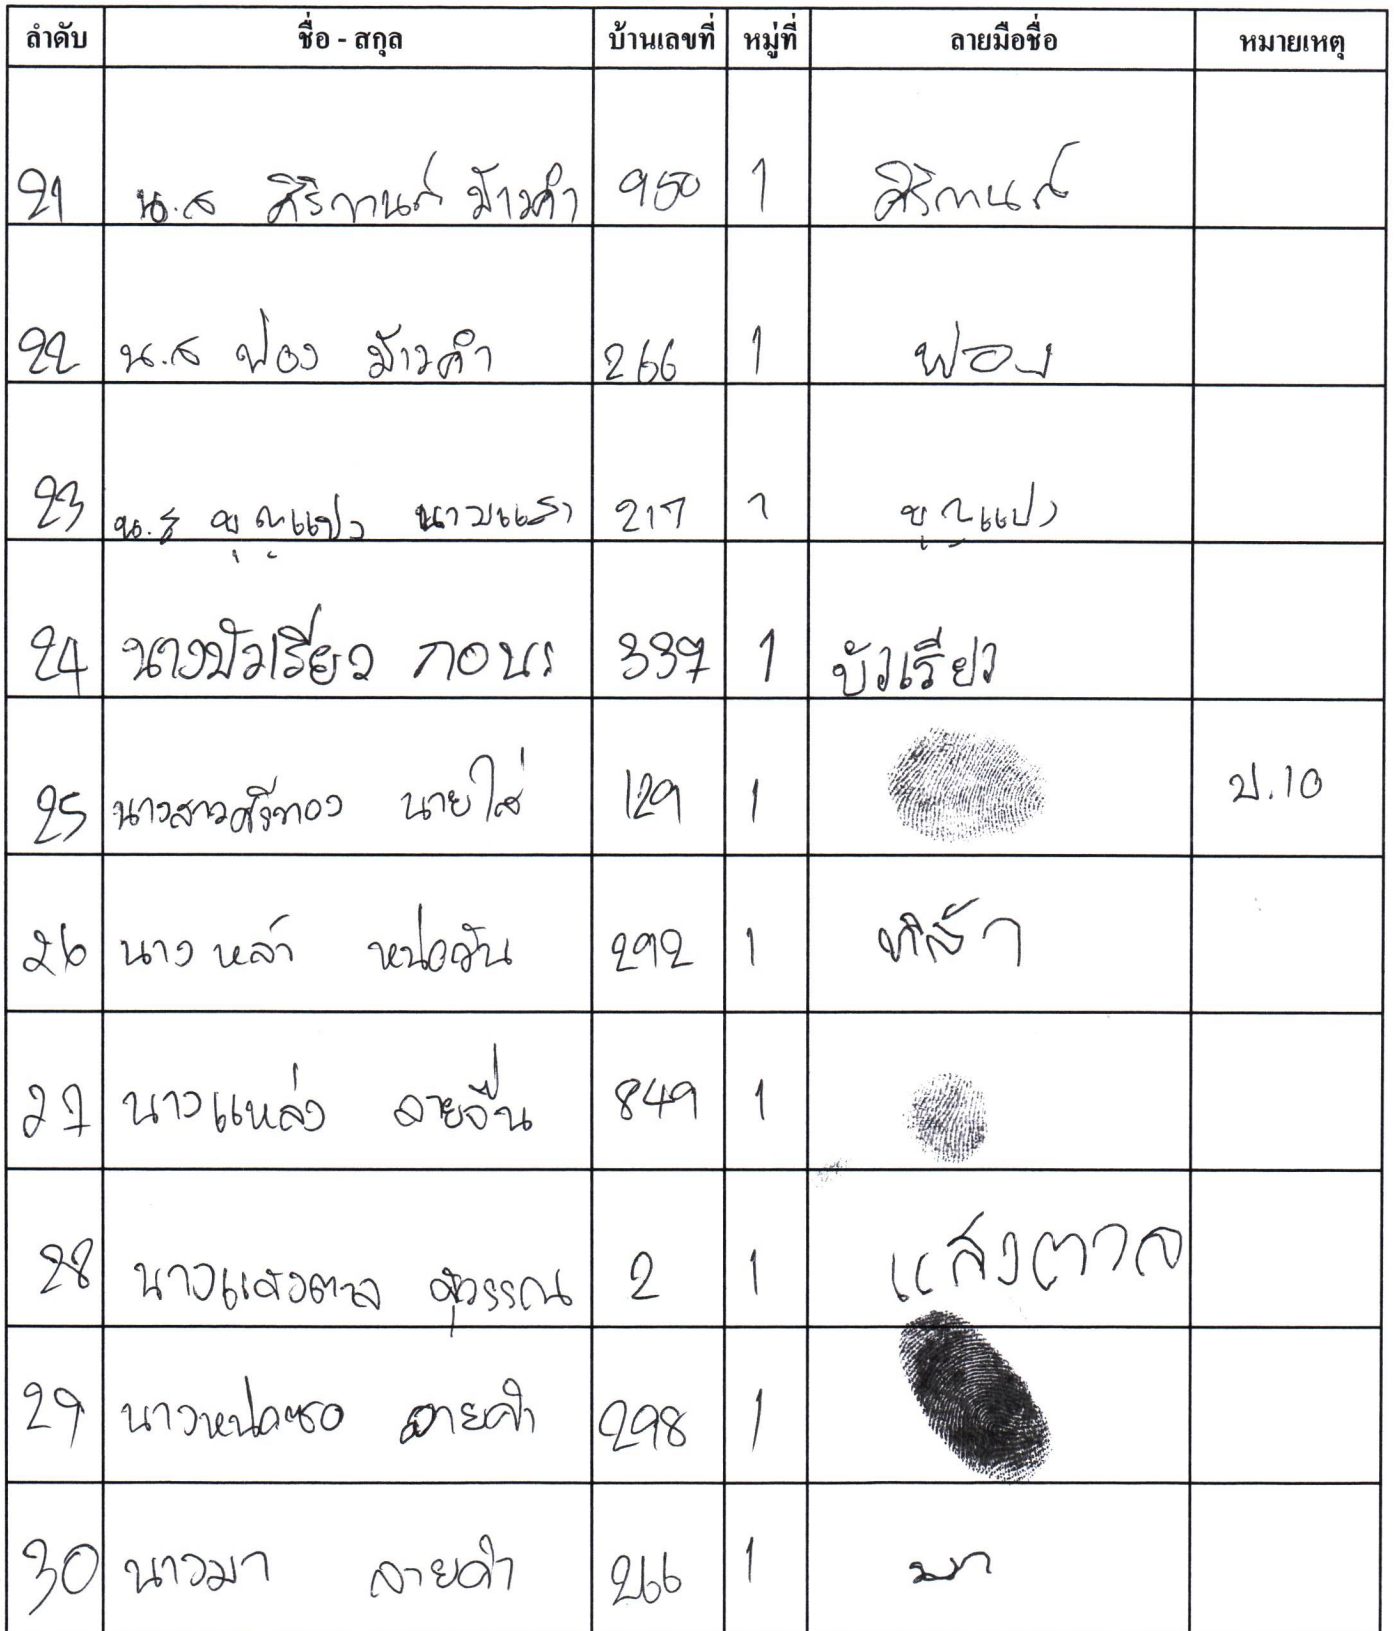 ลำดับ ชื่อ - สกุล บ้านเลขที่ หมู่ที่ ลายมือชื่อ หมายเหตุ
21 น.ส ศิริกานต์ ม้าวคำ 950 1 ศิริกานต์
22 น.ส ฟอง ม้าวคำ 266 1 ฟอง
23 น.ส 217 1
24 นางบัวเรียว กอนร 337 1 บัวเรียว
25 นางสาวศรีทอง นายใส่ 129 1 ป.10
26 นาง หล้า หน่อวัน 292 1 หล้า
27 นางแหล่ง ลายจื่น 849 1
28 นางแสงตาล สุวรรณ 2 1 แสงตาล
29 นางหน่อซอ ลายคำ 298 1
30 นางมา ลายคำ 266 1 มา